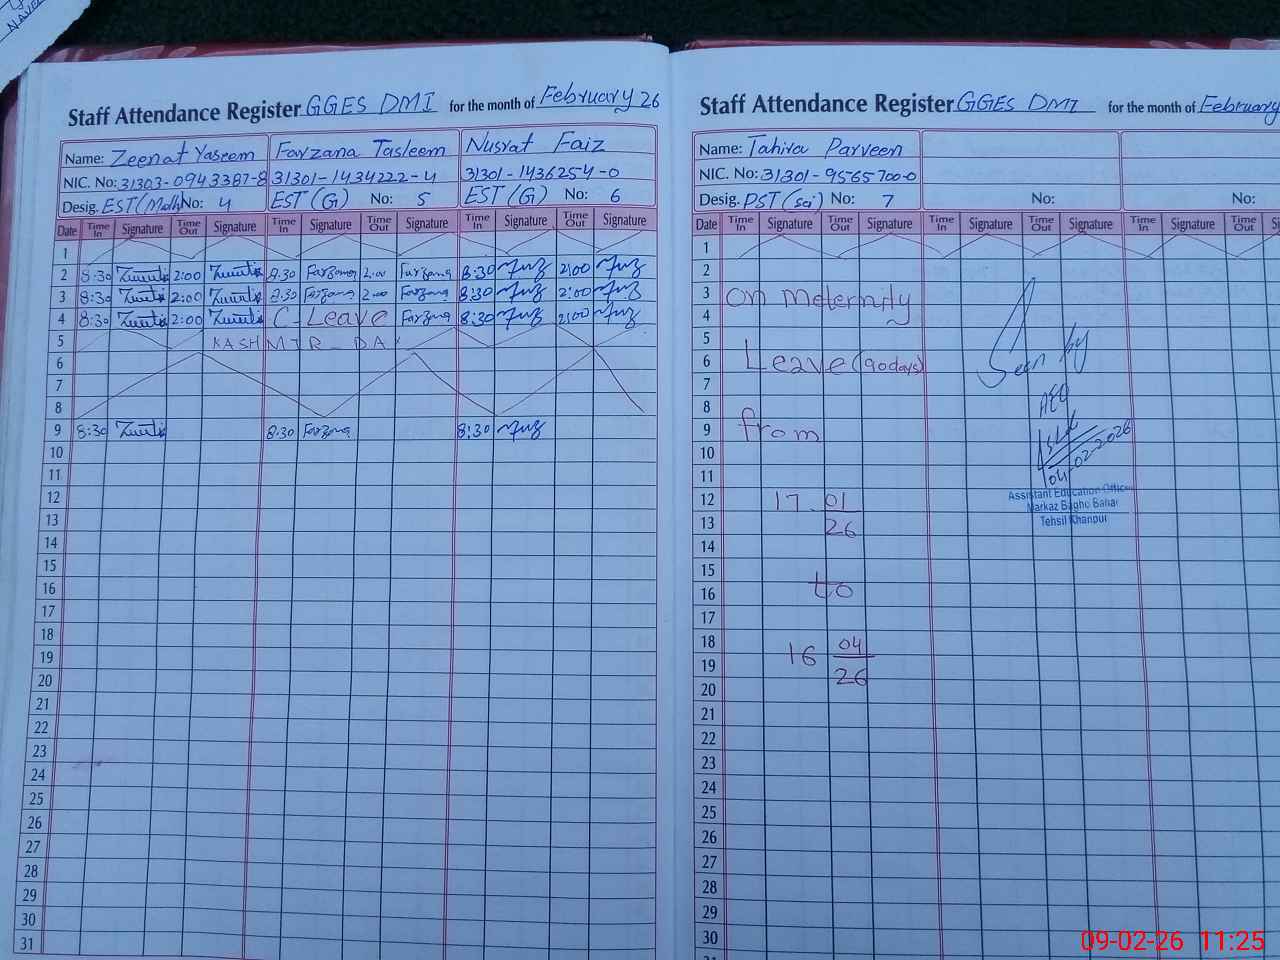 NAVE
Staff Attendance Register GGES DMI for the month of February 26
Name: Zeenat Yaseem Farzana Tasleem Nusrat Faiz
NIC. No: 31303-0943387-8 31301-1434222-4 31301-1436254-0
Desig. EST(Math) No: 4 EST (G) No: 5 EST (G) No: 6
Date Time In Signature Time Out Signature Time In Signature Time Out Signature Time In Signature Time Out Signature
1
2 8:30 2:00 8:30 Farzana 2:00 Farzana 8:30 2:00
3 8:30 2:00 8:30 Farzana 2:00 Farzana 8:30 2:00
4 8:30 2:00 C-Leave Farzana 8:30 2:00
5 KASHMIR DAY
6
7
8
9 8:30 8:30 Farzana 8:30
10
11
12
13
14
15
16
17
18
19
20
21
22
23
24
25
26
27
28
29
30
31
Staff Attendance Register GGES DMI for the month of February
Name: Tahira Parveen
NIC. No: 31301-9565700-0
Desig. PST (Sci) No: 7 No: No:
Date Time In Signature Time Out Signature Time In Signature Time Out Signature Time In Signature Time Out
1
2
3 On Meternity
4
5
6 Leave (90days) Seen by
7
8 AEO
9 from
10 04-02-2026
11
12 17.01 Assistant Education Officer
13 26 Markaz Bagho Bahar
Tehsil Khanpur
14
15
16 to
17
18 16 04
19 26
20
21
22
23
24
25
26
27
28
29
30
09-02-26 11:25